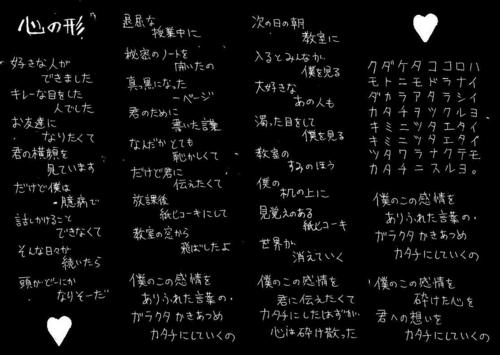 心の形
好きな人が
できました
キレーな目をした
人でした
お友達に
なりたくて
君の横顔を
見ています
だけど僕は
臆病で
話しかけること
できなくて
そんな日々が
続いたら
頭がどーにか
なりそーだ
退屈な
授業中に
秘密のノートを
開いたの
真っ黒になった
一ページ
君のために
書いた言葉
なんだかとても
恥かしくて
だけど君に
伝えたくて
放課後
紙ヒコーキにして
教室の窓から
飛ばしたよ
僕のこの感情を
ありふれた言葉の・
ガラクタかきあつめ
カタチにしていくの
次の日の朝
教室に
入るとみんなが
僕を見る
大好きな
あの人も
濁った目をして
僕を見る
教室の
すみのほう
僕の
机の上に
見覚えのある
紙ヒコーキ
世界が
消えていく
僕のこの感情を
君に伝えたくて
カタチにしたはずが
心は砕け散った
クダケタココロハ
モトニモドラナイ
ダカラアタラシイ
カタチヲツクルヨ
キミニツタエタイ
キミニツタエタイ
ツタワラナクテモ
カタチニスルヨ。
僕のこの感情を
ありふれた言葉の・
ガラクタかきあつめ
カタチにしていくの
僕のこの感情を
砕けた心を
君への想いを
カタチにしていくの